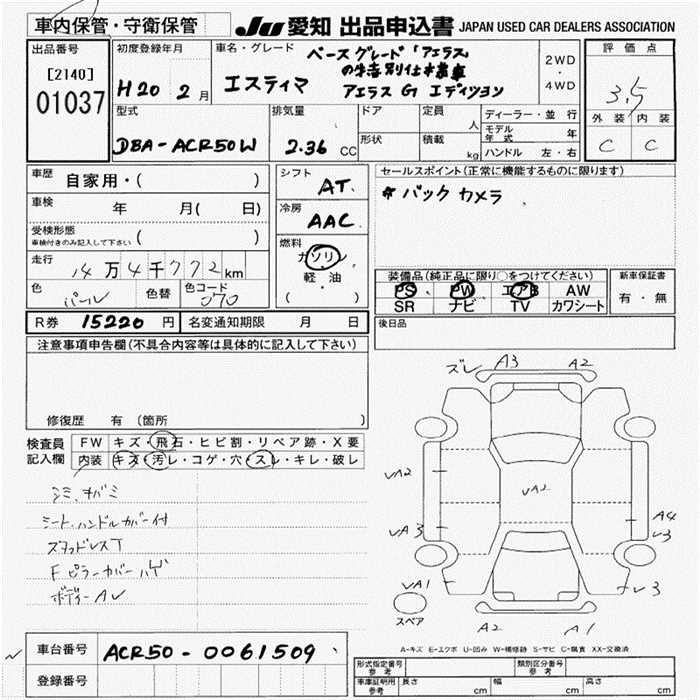 車内保管・守衛保管
JU 愛知 出品申込書 JAPAN USED CAR DEALERS ASSOCIATION
出品番号 初度登録年月 車名・グレード 2WD・4WD 評価点
[2140]
01037
H20 2月
エスティマ
ベースグレード「アエラス」
の特別仕様車
アエラス G エディション
3.5
外装 内装
C C
型式 排気量 ドア 定員 人 ディーラー・並行
形状 積載 kg モデル年式 年
ハンドル 左・右
DBA-ACR50W 2.36 CC
車歴 自家用・( )
シフト AT
セールスポイント(正常に機能するものに限ります)
* バックカメラ
車検 年 月( 日)
冷房 AAC
受検形態 ( )
車検付きのみ記入して下さい
燃料 ガソリン
軽・油
( )
走行 14万4千772km
色 パール 色替 色コード 070
装備品(純正品に限り○をつけてください) 新車保証書
PS PW エアB AW 有・無
SR ナビ TV カワシート
R券 15220円 名変通知期限 月 日
後日品
注意事項申告欄(不具合内容等は具体的に記入して下さい)
修復歴 有 (箇所 )
検査員 FW キズ・飛石・ヒビ割・リペア跡・X要
記入欄 内装 キズ・汚レ・コゲ・穴・スレ・キレ・破レ
シミ、キバミ
シート、ハンドルカバー付
スタッドレスT
Fピラーカバーハゲ
ボディーAU
ズレ A3 A2
UA2
UA2
UA3
A4
U3
UA1
U3
スペア
A2 A1
A-キズ E-エクボ U-凹み W-補修跡 S-サビ C-腐食 XX-交換済
車台番号 ACR50-0061509
登録番号
形式指定番号 参考 類別区分番号 参考
車庫証明用 参考 長さ cm 幅 cm 高さ cm